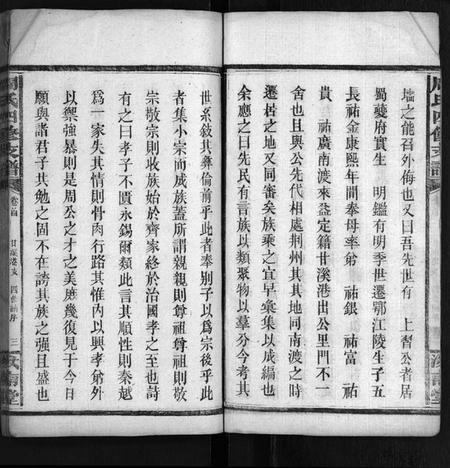 墻之能召外侮也又曰吾先世有 上智公者居
蜀夔府實生 明鑑有明季世遷鄂江陵生子五
長祐金康熙年間奉母率弟 祐銀 祐富 祐
貴 祐廣南渡來益定籍甘溪港出公里門不一
舍也且與公先代相處荆州其其地同南渡之時
遷居之地又同審矣族乘之宜早彙集以成編也
余應之曰先民有言族以類聚物以羣分今考其
世系敘其彝倫前乎此者奉别子以爲宗後乎此
者集小宗而成族蓋所謂親親則尊祖尊祖則敬
宗敬宗則收族始於齊家終於治國孝之至也詩
有之曰孝子不匱永錫爾類此言其順性則秦越
爲一家失其情則骨肉行路其惟內以興孝弟外
以禦強暴則是周公之才之美庶幾復見于今日
願與諸君子共勉之固不在誇其族之强且盛也
周氏四修支譜
卷首
甘溪港支
三